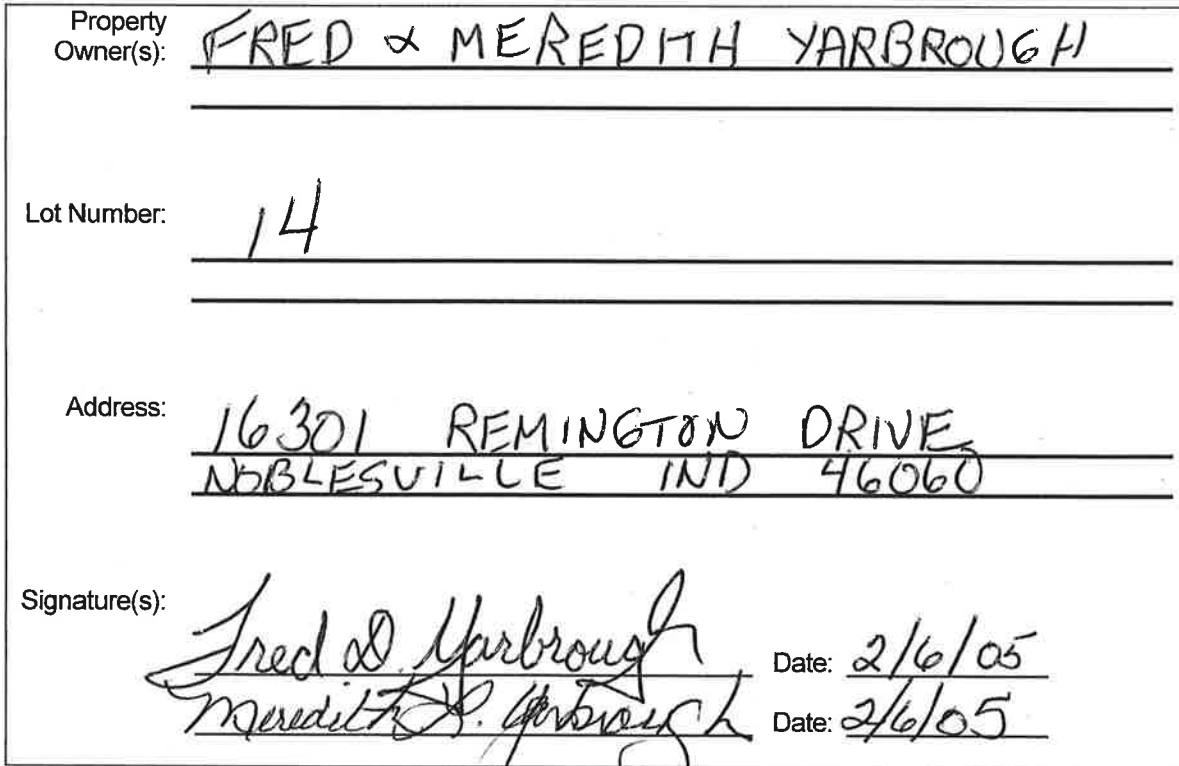 Property Owner(s): FRED & MEREDITH YARBROUGH
Lot Number: 14
Address: 16301 REMINGTON DRIVE
NOBLESVILLE IND 46060
Signature(s): Fred D. Yarbrough Date: 2/6/05
Meredith Yarbrough Date: 2/6/05